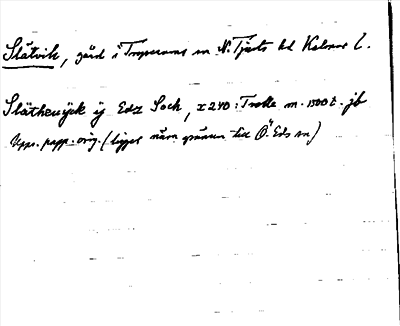 Slätvik, gård i Tryserums sn N. Tjusts hd Kalmar l.
Slätheuijck ij Edz Sock, x 240: Trolle m. 1500 t. jb
Upps. papp. orig. (ligger nära gränsen till Ö. Eds sn)